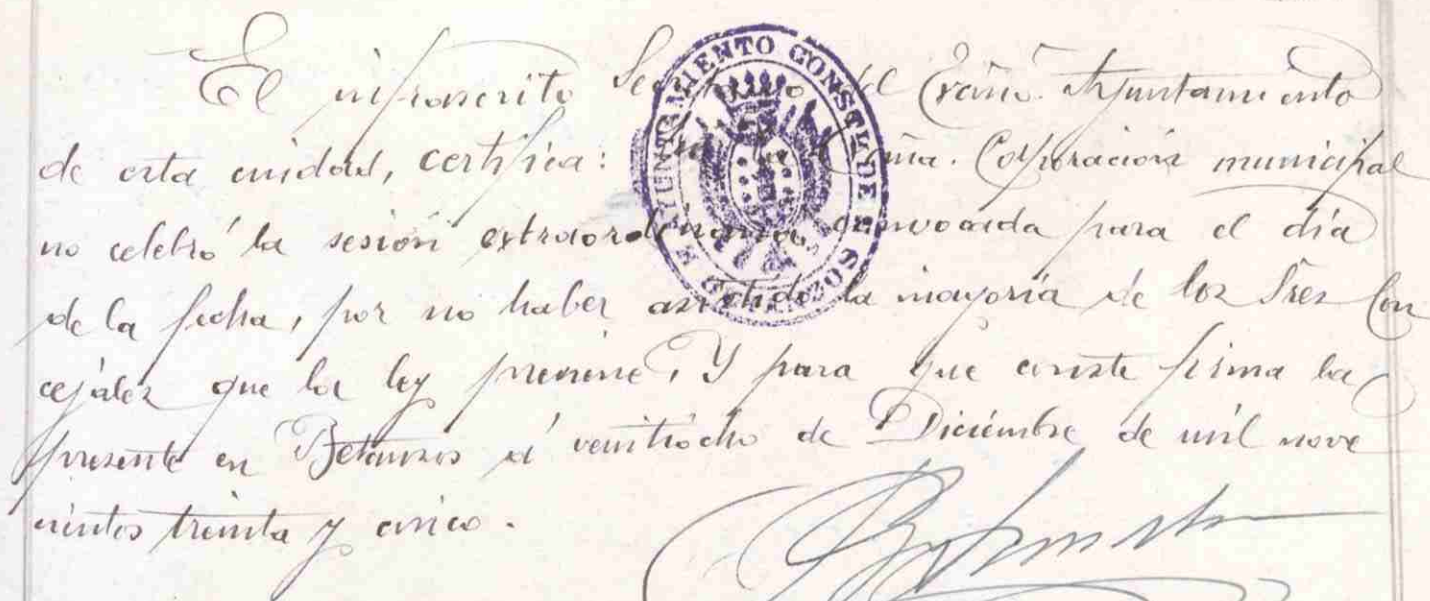 El infrascrito Secretario del Excmo. Ayuntamiento
de esta ciudad, certifica: Que la Excma. Corporación municipal
no celebró la sesión extraordinaria, convocada para el día
de la fecha, por no haber asistido la mayoría de los Sres Con
cejales que la ley previene. Y para que conste firma la
presente en Betanzos á veintiocho de Diciembre de mil nove
cientos treinta y cinco.
AYUNTAMIENTO CONSTL DE